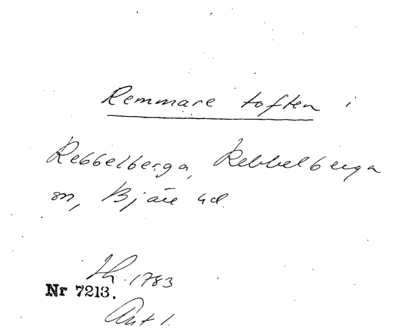 Remmare toften i
Rebbelberga, Rebbelberga
sn, Bjäre hd.
Lh. 1783
Nr 7213.
Akt 1.